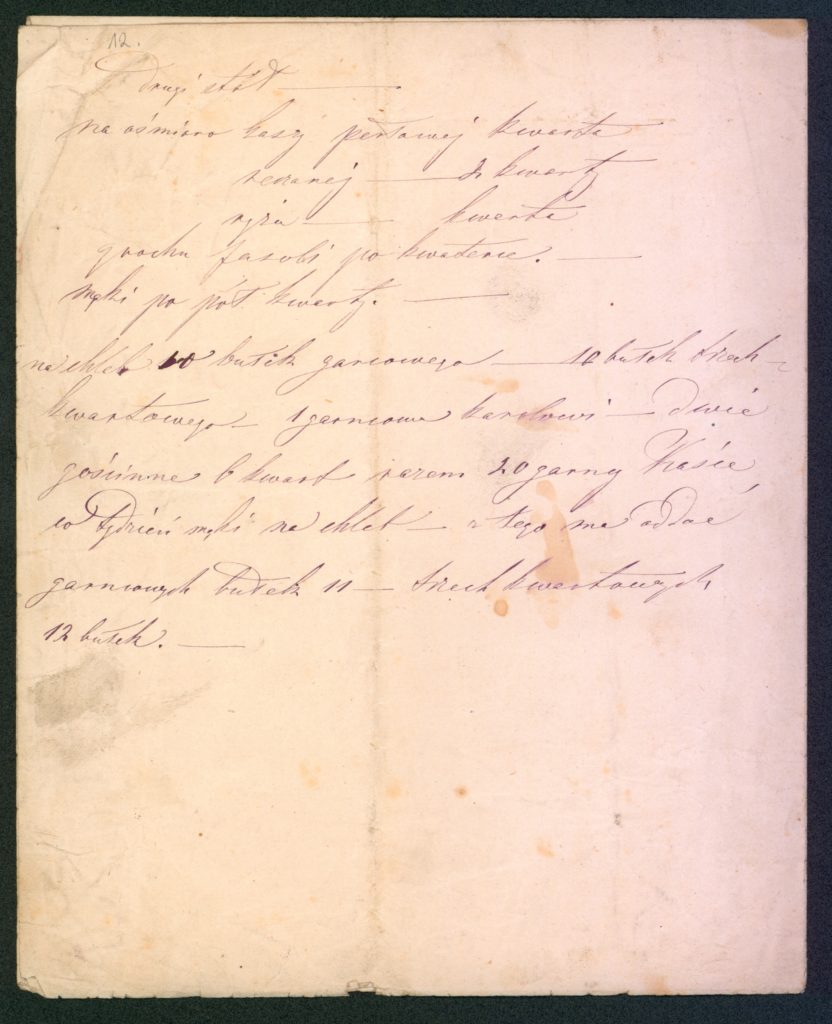 12.
Drugi stół —
na ośmioro kaszy perłowej kwarta
reczanej — 2 kwarty
ryżu — kwarta
grochu fasoli po kwaterce. —
mąki po pół kwarty. —
na chleb 10 bułek garcowego — 10 bułek trzech
kwartowego — 1 garncowa karolowi — dwie
gościnne 6 kwart razem 20 garncy Kasie
w tydzień mąki na chleb — z tego ma oddać
garncowych bułek 11 — trzech kwartowych
12 bułek. —